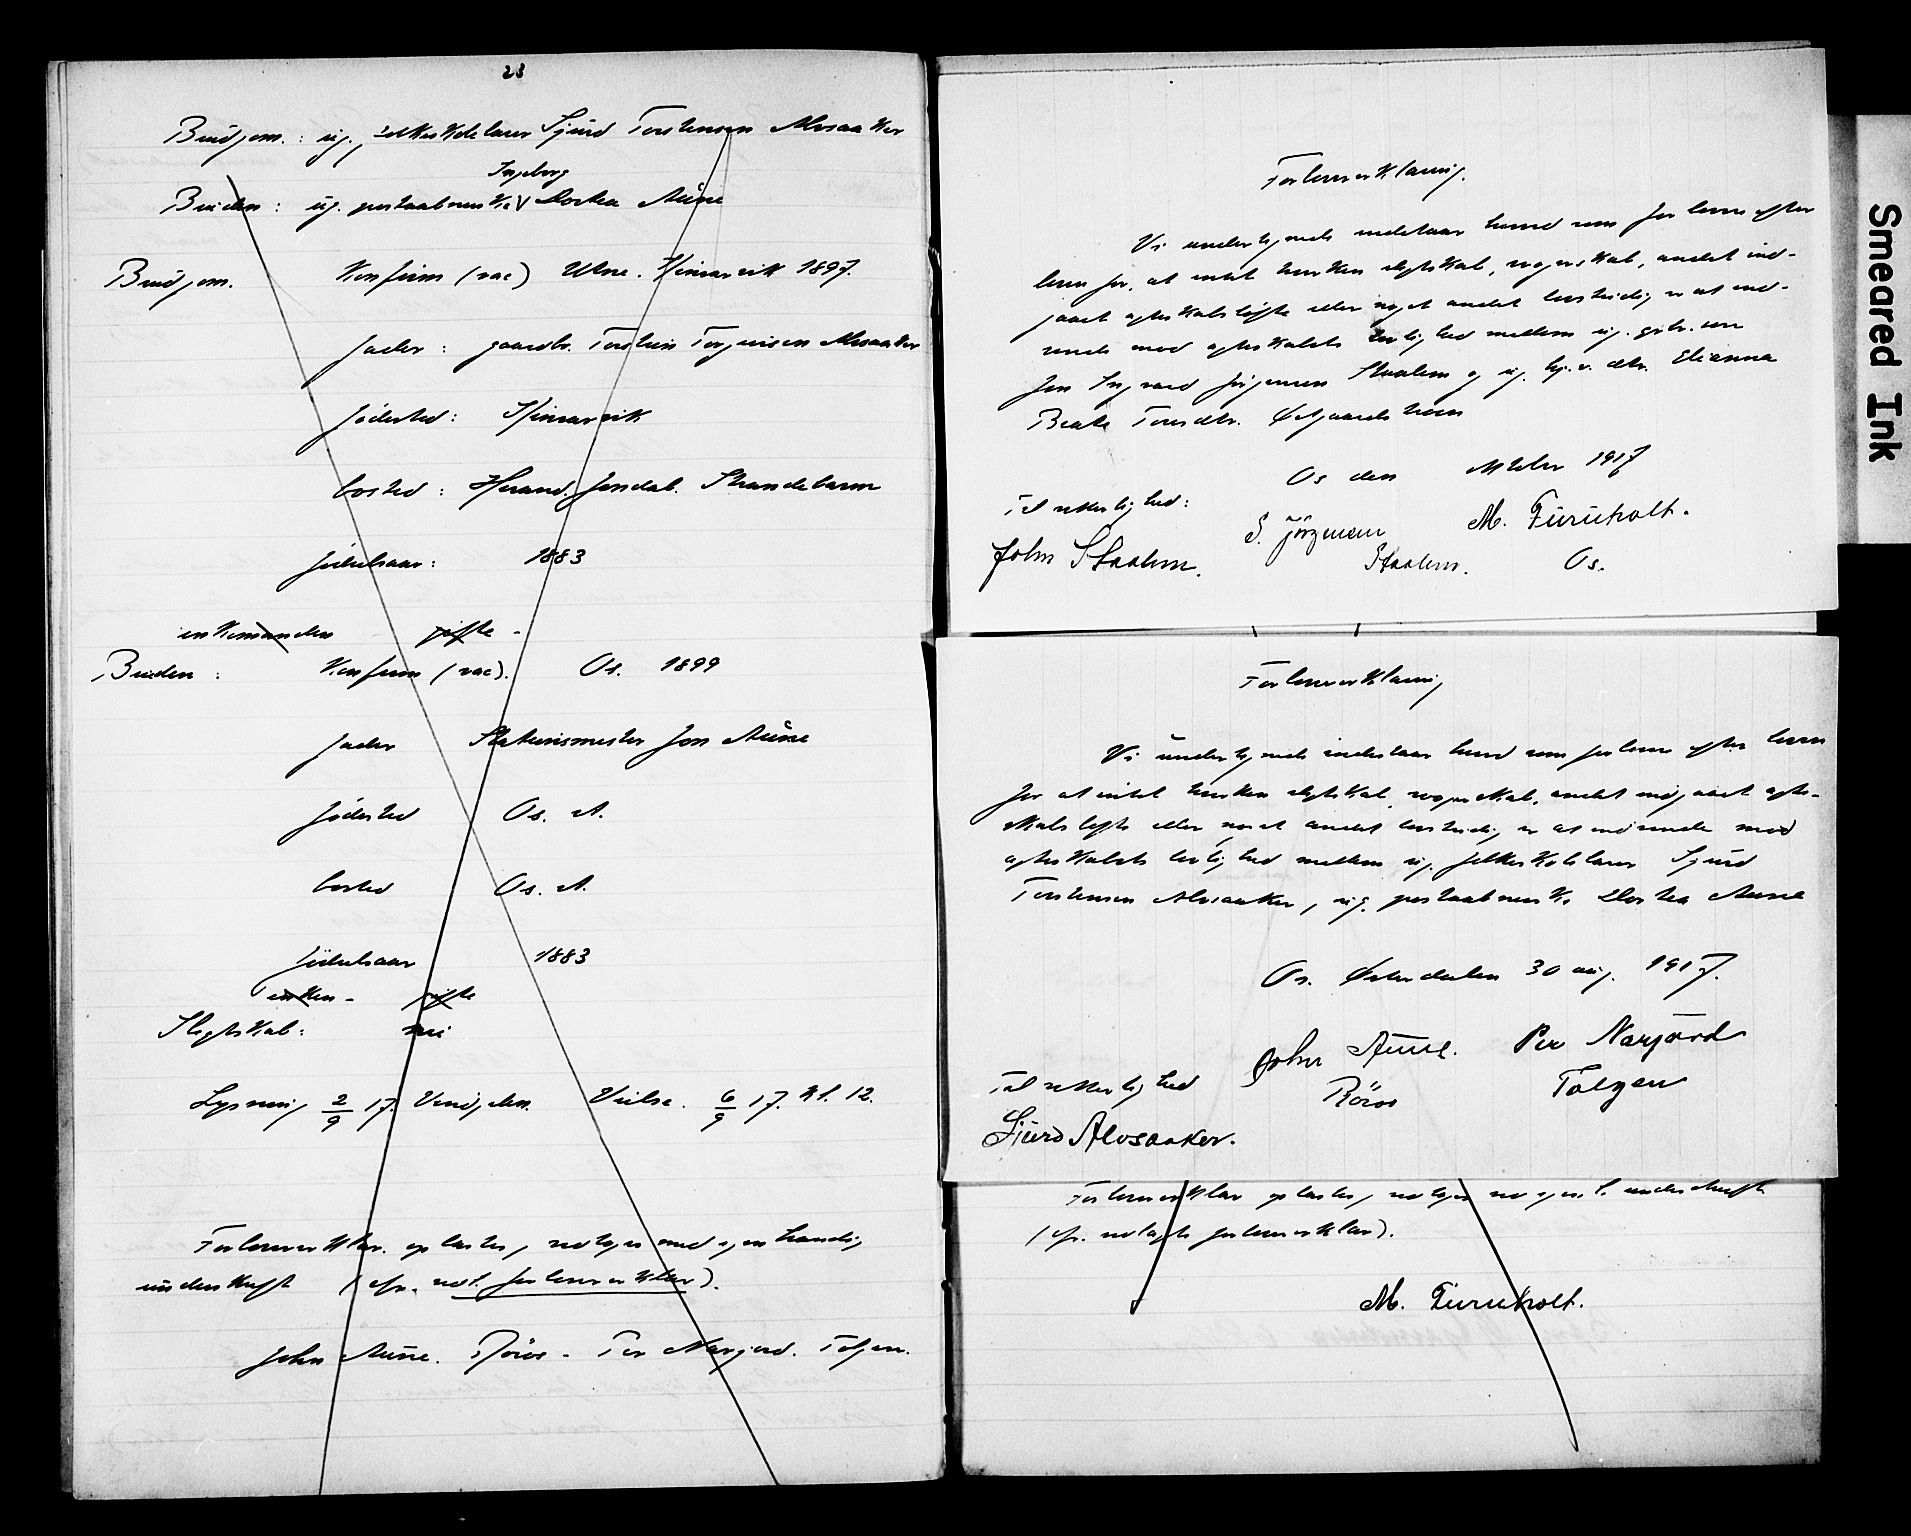 23
Brudgom. : ug. folkeskolelærer Sjurd Torstensen Alvsaaker
Ingeborg
Bruden : ug. postaabnerske Dortea Aune
Brudgom. Konfirm (vac) Utne. Kinsarvik 1897.
fader : gaardbr. Torstein Torgeirsen Alvsaaker
födested : Kinsarvik
bosted : Herand. Jondal. Strandebarm
födselsaar : 1883
enkemanden gifte -
Bruden : Konfirm (vac). Os. 1899
fader Stationsmester Jon Aune
födested Os. A.
bosted Os. A.
födselsaar 1883
enken - gifte
Slegtskab: nei
Lysning 2/9 17. Vingelen. Vielse. 6/9 17. kl. 12.
Forlovererklær. oplæstes, vedtoges med egenhændig
underskrift (cfr. vedl. forlovererklær).
John Aune. Röros - Per Narjord. Tolgen.
Forlovererklæring.
Vi undertegnede indestaar herved som forlovere efter
loven for, at intet hverken slegtskab, svogerskab, andet ind-
gaaet egteskabslöfte eller noget andet lovstridig er at ind-
vende mod egteskabets lovlighed mellem ug. gbr. sön
Jon Ingvard Jörgensen Staalem og ug. datr. Elianna
Beate Tomdtr. Östgaardstrøen
Os den oktober 1917
Til vitterlighed: M. Furuholt.
John Staalem. S. Jörgensen
Staalem. Os.
Forlovererklæring
Vi undertegnede indestaar herved som forlovere efter loven
for at intet hverken slegtskab, svogerskab, andet indgaaet egte-
skabslöfte eller noget andet lovstridig er at indvende mod
egteskabets lovlighed mellem ug. folkeskolelærer Sjurd
Torstensen Alvsaaker, ug. postaabnerske Dortea Aune
Os. Østerdalen 30 aug. 1917.
John Aune. Per Narjord
Til vitterlighed Röros Tolgen
Sjurd Alvsaaker.
Forlovererklær oplæstes, vedtoges ved egenh. underskrift
(cfr. vedlagte forlovererklær).
M. Furuholt.
Smeared Ink